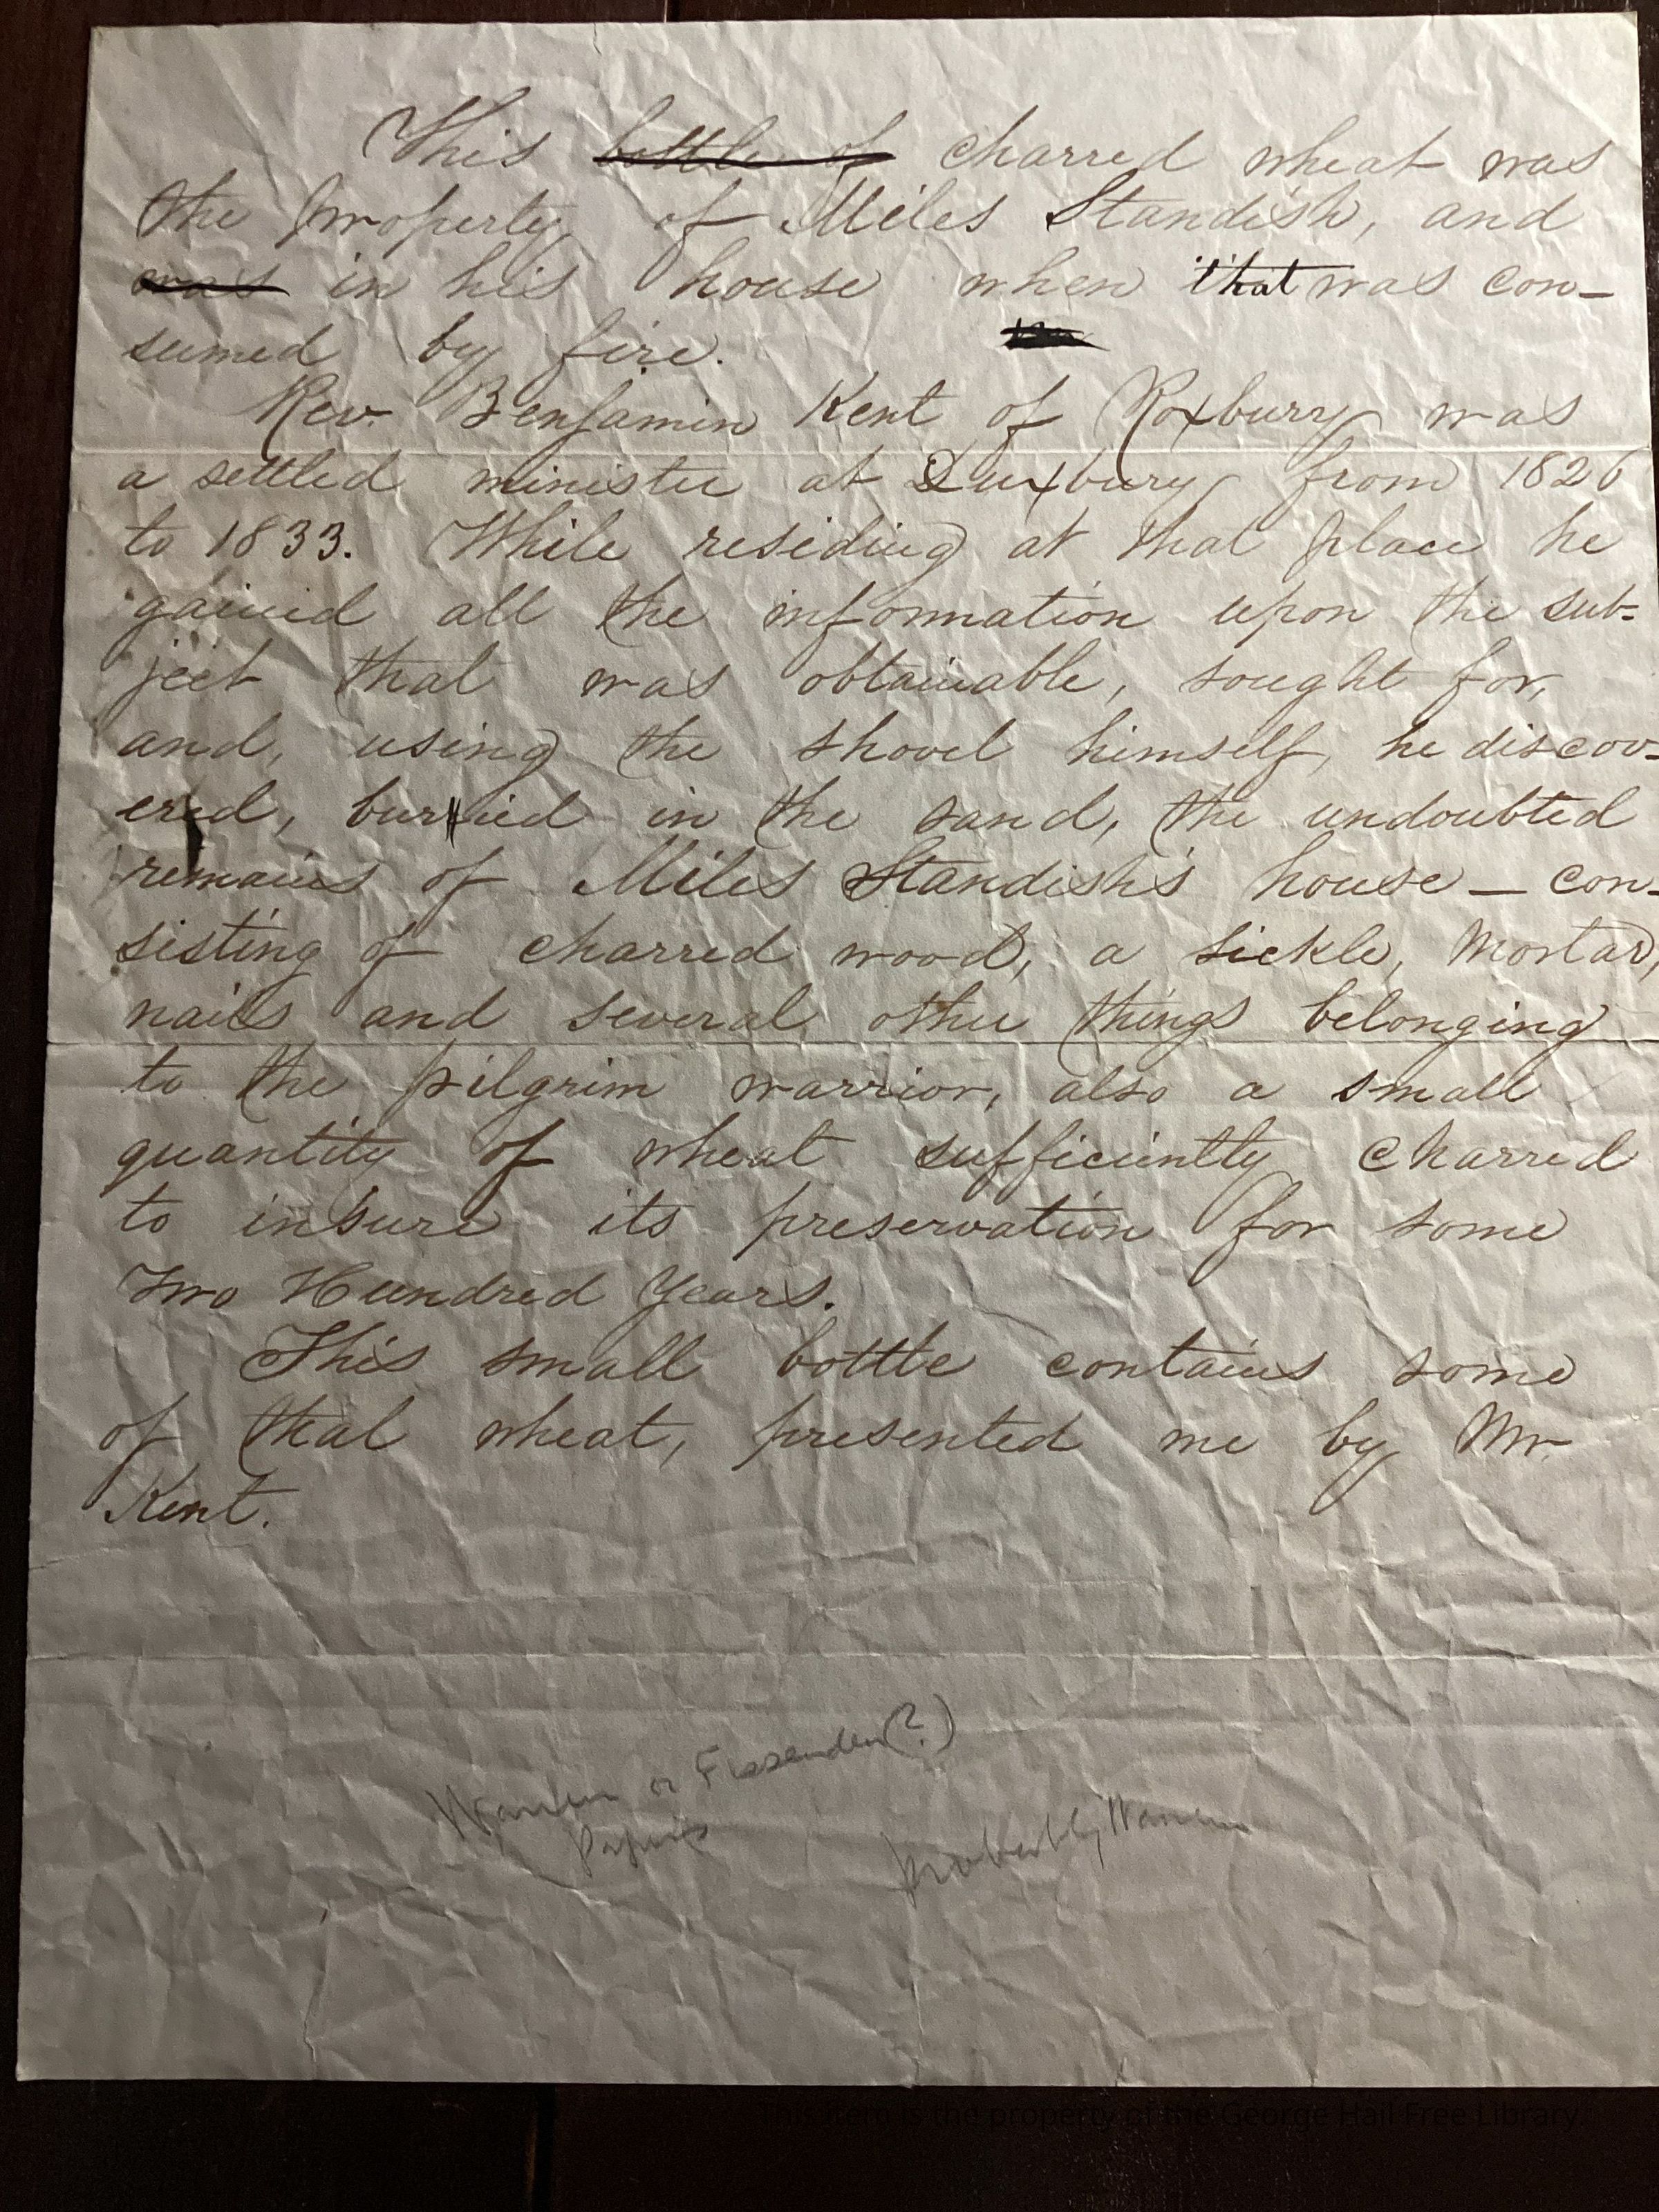 This bottle of charred wheat was
the property of Miles Standish, and
was in his house when that was con-
sumed by fire.
Rev. Benjamin Kent of Roxbury was
a settled minister at Duxbury from 1826
to 1833. While residing at that place he
gained all the information upon the sub-
ject that was obtainable, sought for,
and, using the shovel himself, he discov-
ered, burried in the sand, the undoubted
remains of Miles Standish's house — con-
sisting of charred wood, a sickle, mortar,
nails and several other things belonging
to the pilgrim warrior, also a small
quantity of wheat sufficiently charred
to insure its preservation for some
Two Hundred Years.
This small bottle contains some
of that wheat, presented me by Mr.
Kent.
Warren or Fessenden (?)
Papers
probably Warren
This item is the property of the George Hail Free Library.